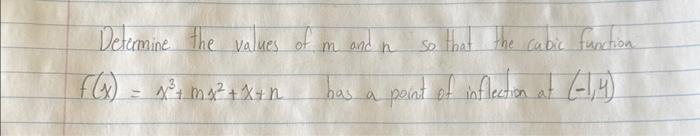 Determine the values of m and n so that the cubic function
f(x) = x³ + mx² + x + n has a point of inflection at (-1,4)